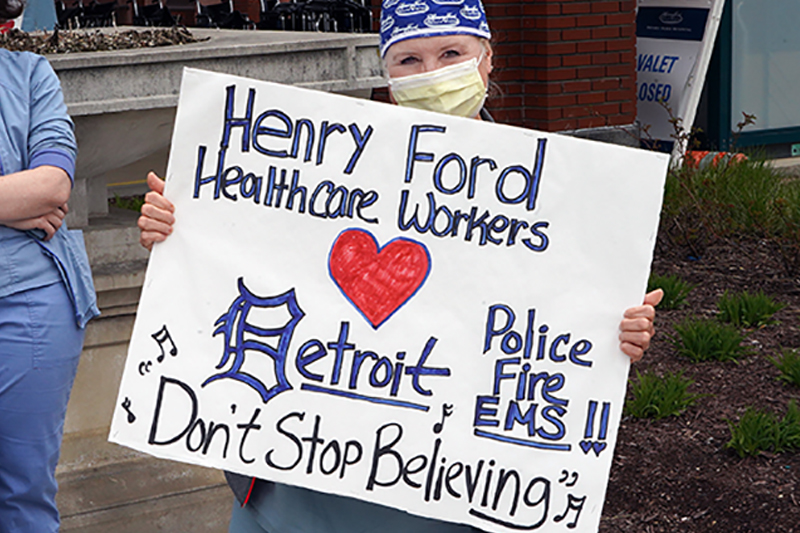 Henry Ford
Healthcare Workers
Detroit
Police
Fire
EMS!!
"Don't Stop Believing"
VALET